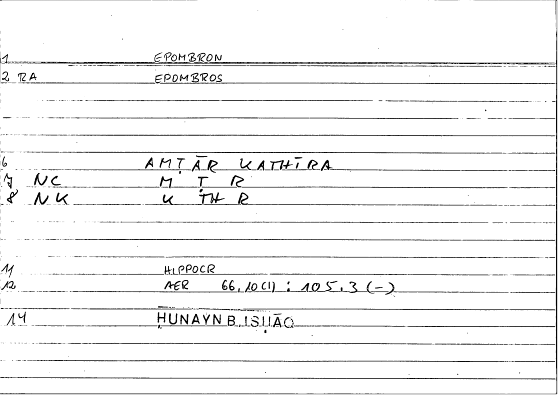 1 EPOMBRON
2 RA EPOMBROS
6 AMṬĀR KATHĪRA
7 NC M Ṭ R
8 NK K TH R
11 HIPPOCR
12 AER 66,10(1) : 105.3 (-)
14 ḤUNAYN B. ISḤĀQ